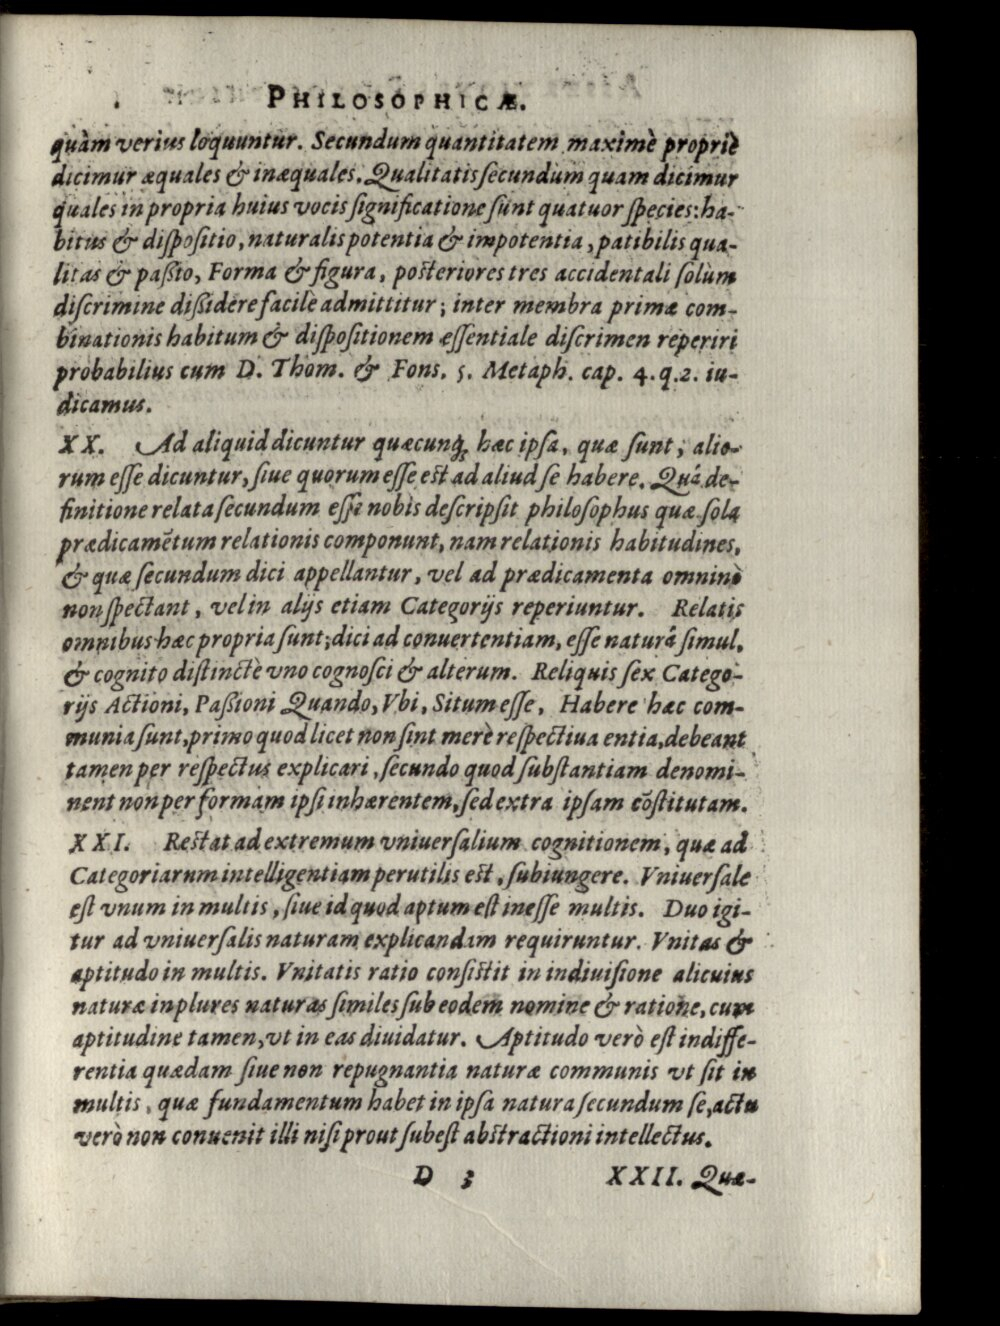 PHILOSOPHICÆ.
quàm verius loquuntur. Secundum quantitatem maximè propriè
dicimur æquales & inæquales. Qualitatis ſecundum quam dicimur
quales in propria huius vocis ſignificatione ſunt quatuor ſpecies: ha-
bitus & diſpoſitio, naturalis potentia & impotentia, patibilis qua-
litas & paßio, Forma & figura, poſteriores tres accidentali ſolùm
diſcrimine dißidere facilè admittitur; inter membra primæ com-
binationis habitum & diſpoſitionem eſſentiale diſcrimen reperiri
probabilius cum D. Thom. & Fonſ. 5. Metaph. cap. 4. q. 2. iu-
dicamus.
XX. Ad aliquid dicuntur quæcunq; hæc ipſa, quæ ſunt, alio-
rum eſſe dicuntur, ſiue quorum eſſe eſt ad aliud ſe habere. Quâ de-
finitione relata ſecundum eſſe nobis deſcripſit philoſophus quæ ſola
prædicamẽtum relationis componunt, nam relationis habitudines,
& quæ ſecundum dici appellantur, vel ad prædicamenta omninò
non ſpectant, vel in alijs etiam Categorijs reperiuntur. Relatis
omnibus hæc propria ſunt; dici ad conuertentiam, eſſe naturâ ſimul,
& cognito diſtinctè vno cognoſci & alterum. Reliquis ſex Catego-
rijs Actioni, Paßioni Quando, Vbi, Situm eſſe, Habere hæc com-
munia ſunt, primo quod licet non ſint merè reſpectiua entia, debeant
tamen per reſpectus explicari, ſecundo quod ſubſtantiam denomi-
nent non per formam ipſi inhærentem, ſed extra ipſam cõſtitutam.
XXI. Reſtat ad extremum vniuerſalium cognitionem, quæ ad
Categoriarum intelligentiam perutilis eſt, ſubiungere. Vniuerſale
eſt vnum in multis, ſiue id quod aptum eſt ineſſe multis. Duo igi-
tur ad vniuerſalis naturam explicandam requiruntur. Vnitas &
aptitudo in multis. Vnitatis ratio conſiſtit in indiuiſione alicuius
naturæ in plures naturas ſimiles ſub eodem nomine & ratione, cum
aptitudine tamen, vt in eas diuidatur. Aptitudo verò eſt indiffe-
rentia quædam ſiue non repugnantia naturæ communis vt ſit in
multis, quæ fundamentum habet in ipſa natura ſecundum ſe, actu
verò non conuenit illi niſi prout ſubeſt abſtractioni intellectus.
D 3 XXII. Quæ-